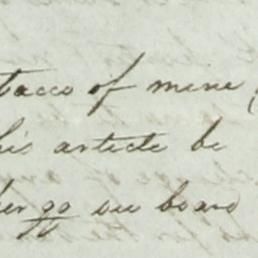 tacco of mine
his article be
her go on board